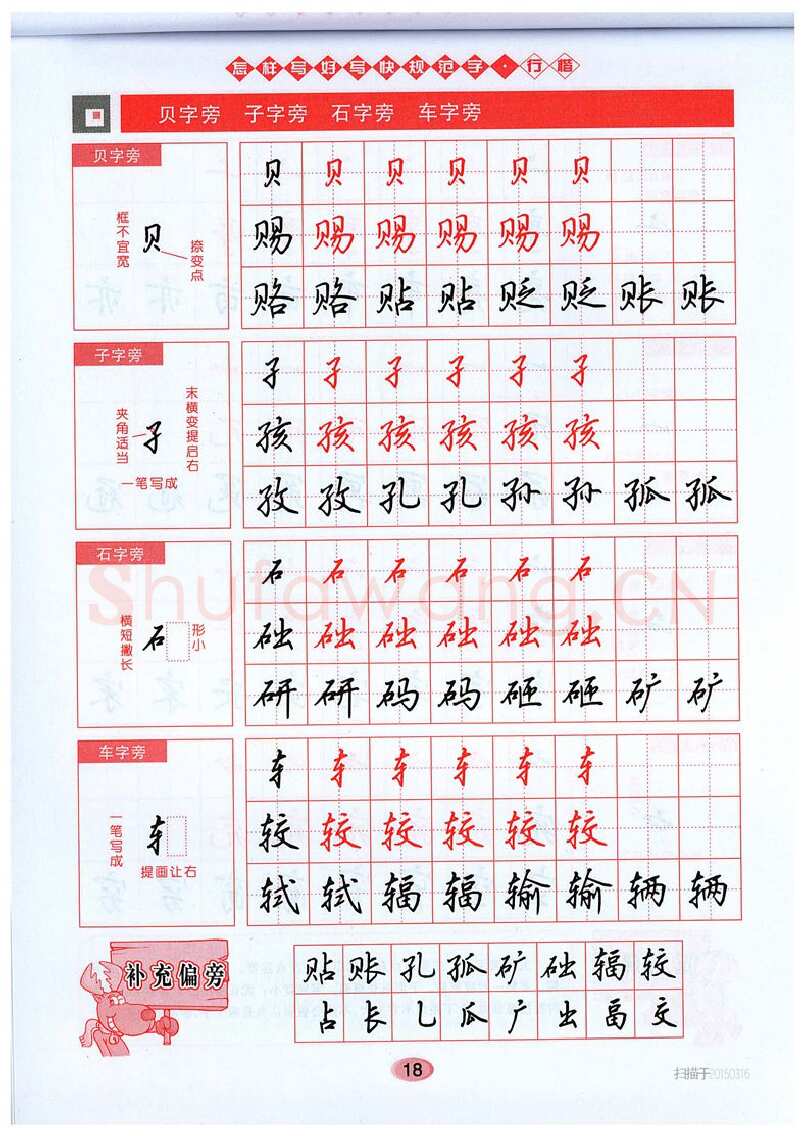 怎样写好写快规范字·行楷
贝字旁 子字旁 石字旁 车字旁
贝字旁
框不宜宽
贝
捺变点
贝 贝 贝 贝 贝 贝
赐 赐 赐 赐 赐 赐
赂 赂 贴 贴 贬 贬 账 账
子字旁
夹角适当
子
末横变提启右
一笔写成
子 子 子 子 子 子
孩 孩 孩 孩 孩 孩
孜 孜 孔 孔 孙 孙 孤 孤
石字旁
横短撇长
石
形小
石 石 石 石 石 石
础 础 础 础 础 础
研 研 码 码 砸 砸 矿 矿
车字旁
一笔写成
车
提画让右
车 车 车 车 车 车
较 较 较 较 较 较
轼 轼 辐 辐 输 输 辆 辆
补充偏旁
贴 账 孔 孤 矿 础 辐 较
占 长 乚 瓜 广 出 畐 交
18
扫描于20150316
Shufawang.CN